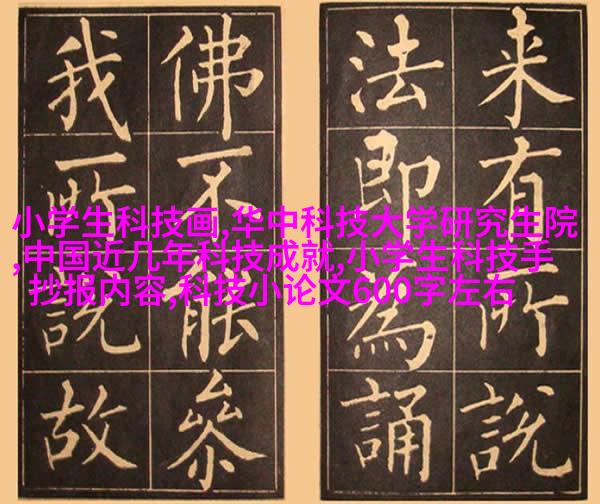 来有所説
法即為誦
佛不能叅
我所説故
小学生科技画,华中科技大学研究生院
,中国近几年科技成就,小学生科技手
抄报内容,科技小论文600字左右